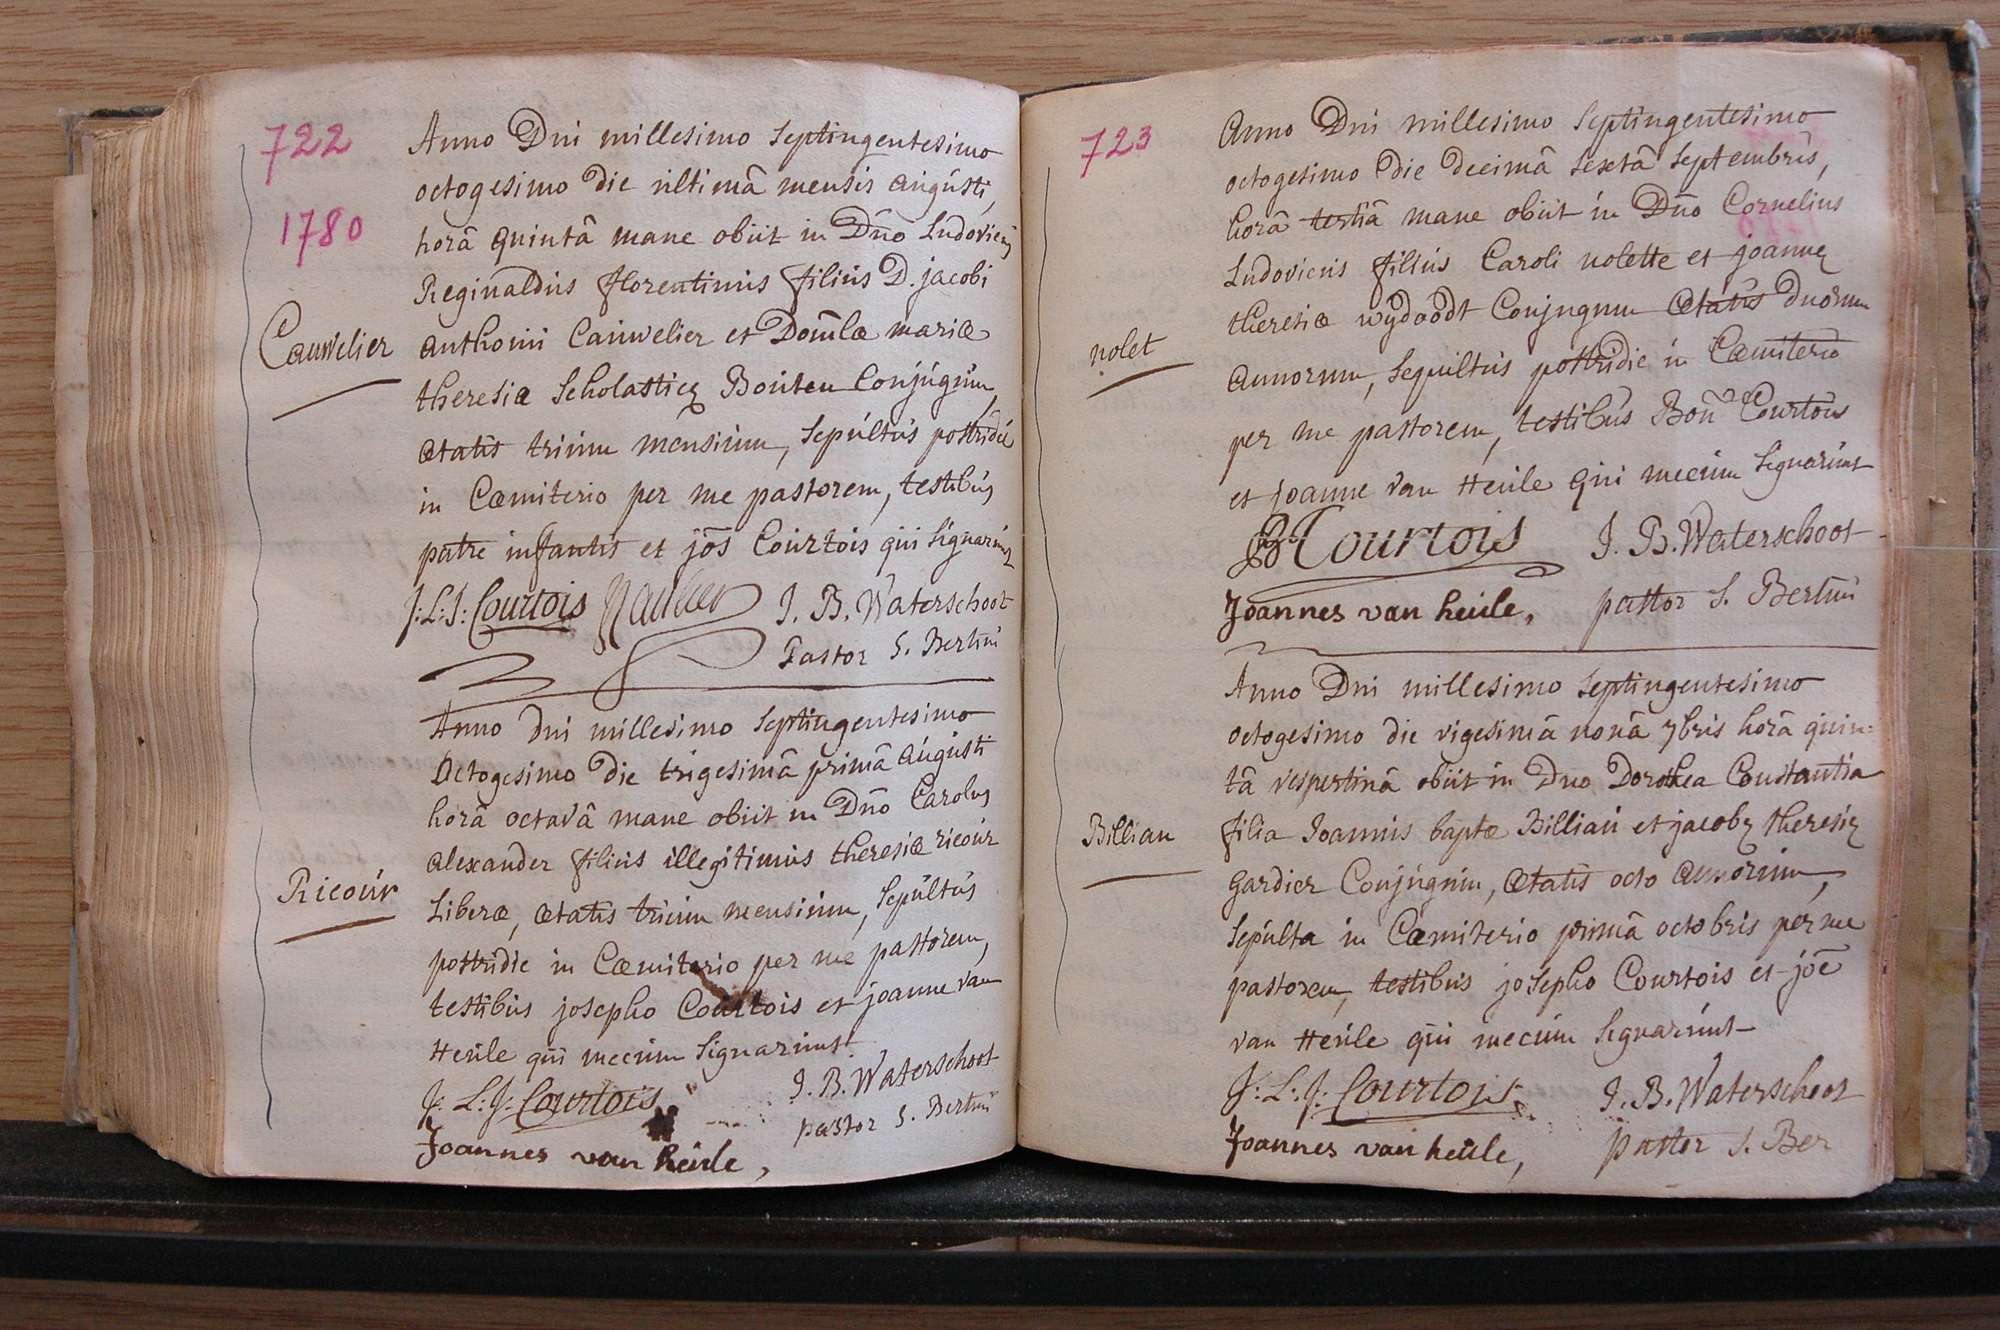 722
1780
Anno Dni millesimo Septingentesimo
octogesimo die ultimâ mensis augusti,
horâ quintâ mane obiit in Dno Ludovicus
Reginaldus florentinus filius D. jacobi
Cauwelier
anthonii Cauwelier et Domlæ mariæ
theresiæ Scholasticæ Bouten Conjugum,
ætatis trium mensium, sepultus postridie
in Cœmiterio per me pastorem, testibus
patre infantis et jōs Courtois qui signarunt
J: L: J: Courtois J. B. Waterschoot
Pastor S. Bertini
Anno dni millesimo septingentesimo
Octogesimo die trigesimâ primâ augusti
horâ octavâ mane obiit in Dno Carolus
alexander filius illegitimus theresiæ ricour
Ricour
Liberæ, ætatis trium mensium, sepultus
postridie in Cœmiterio per me pastorem,
testibus josepho Courtois et joanne van
Heule qui mecum signarunt
J: L: J: Courtois J. B. Waterschoot
Joannes van heule, pastor S. Bertini
723
Anno Dni millesimo Septingentesimo
octogesimo die decimâ sextâ septembris,
horâ tertiâ mane obiit in Dno Cornelius
Ludovicus filius Caroli nolette et joannæ
theresiæ wÿdoodt Conjugum ætatis duorum
nolet
annorum, sepultus postridie in Cœmiterio
per me pastorem, testibus Bonᵒ Courtois
et joanne van Heule qui mecum signarunt
B Courtois J. B. Waterschoot
Joannes van heule, pastor S. Bertini
Anno Dni millesimo septingentesimo
octogesimo die vigesimâ nonâ 7bris horâ quin-
tâ vespertinâ obiit in Dno Dorothea Constantia
Billiau
filia Joannis baptæ Billiau et jacobæ theresiæ
gardier Conjugum, ætatis octo annorum,
sepulta in Cœmiterio primâ octobris per me
pastorem, testibus josepho Courtois et joē
van Heule qui mecum signarunt
J: L: J: Courtois J. B. Waterschoot
Joannes van heule, pastor S. Ber